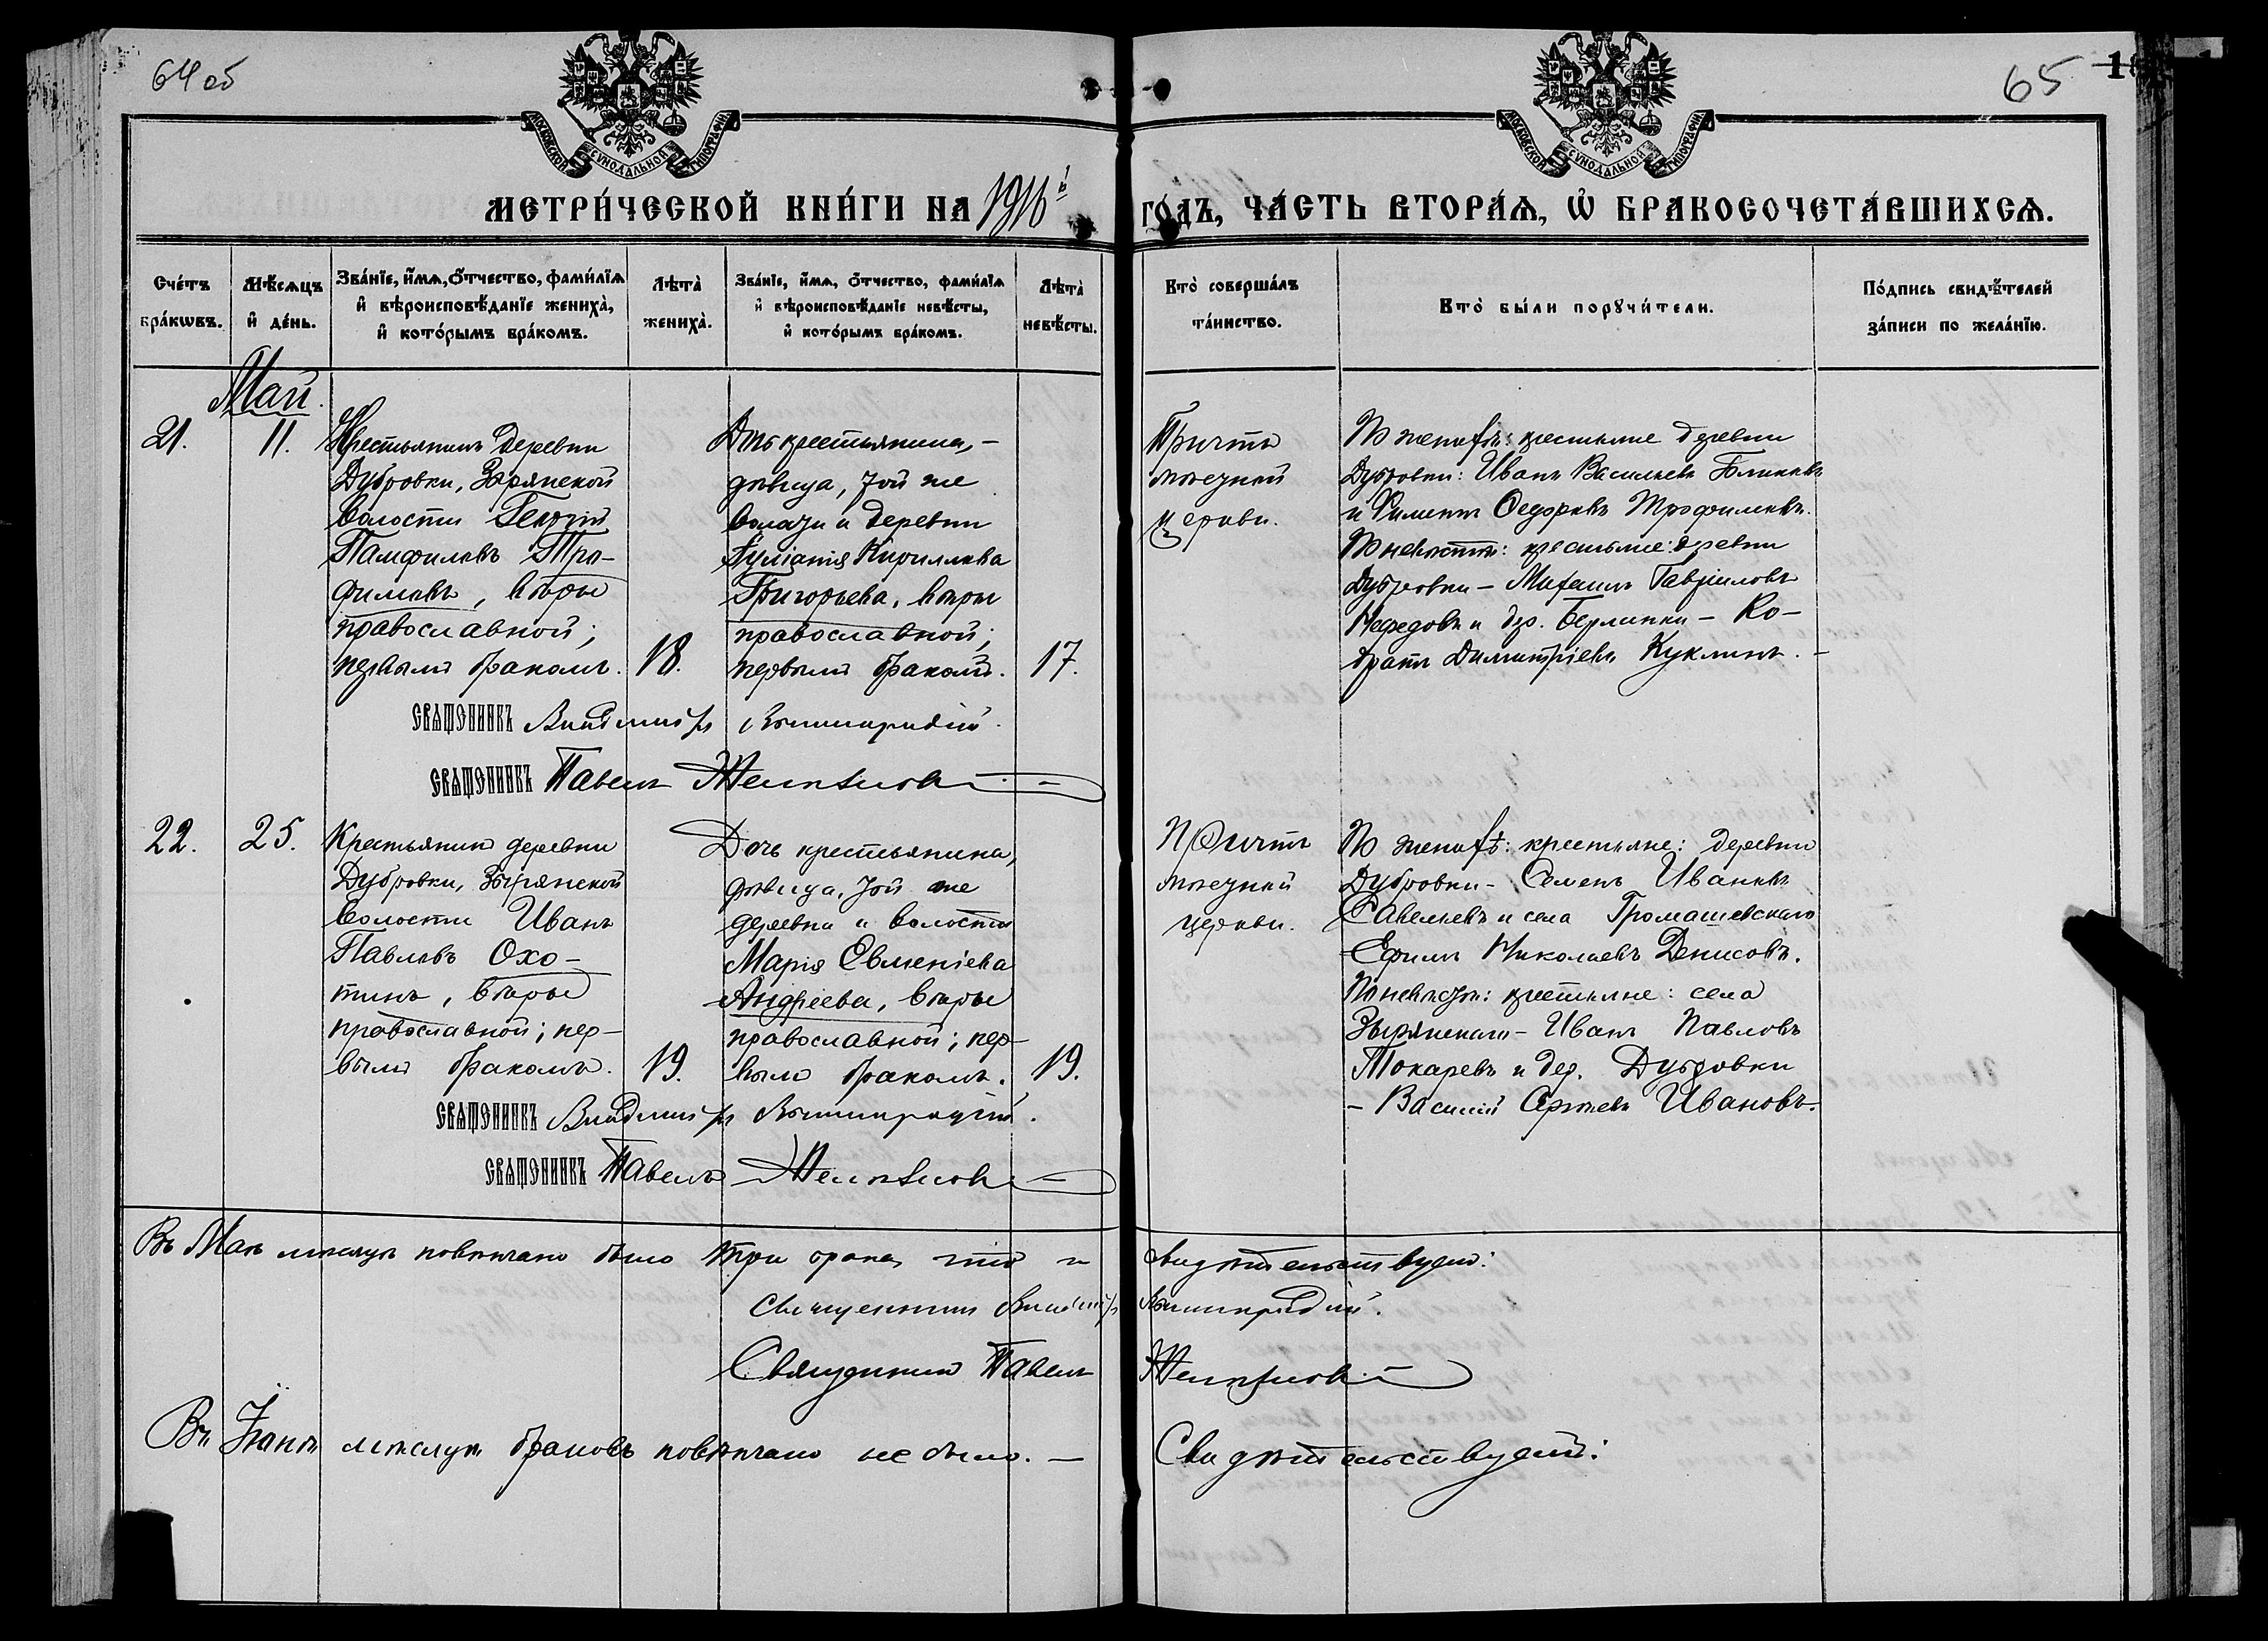 64 об
65
МОСКОВСКОЙ СѴНОДАЛЬНОЙ ТИПОГРАФІИ
МОСКОВСКОЙ СѴНОДАЛЬНОЙ ТИПОГРАФІИ
МЕТРИ́ЧЕСКОЙ КНИ́ГИ НА 1916й ГО́ДЪ, ЧА́СТЬ ВТОРА́Ѧ, Ѡ҆ БРАКОСОЧЕТА́ВШИХСѦ.
Сче́тъ
бра́кѡвъ.
Мѣ́сѧцъ
и҆ де́нь.
Зва́нїе, и҆́мѧ, ѻ҆́тчество, фами́лїѧ
и҆ вѣроисповѣ́данїе жениха̀,
и҆ кото́рымъ бра́комъ.
Лѣта̀
жениха̀.
Зва́нїе, и҆́мѧ, ѻ҆́тчество, фами́лїѧ
и҆ вѣроисповѣ́данїе невѣ́сты,
и҆ кото́рымъ бра́комъ.
Лѣта̀
невѣ́сты.
Кто̀ соверша́лъ
та́инство.
Кто̀ бы́ли порꙋчи́тели.
По́дпись свидѣ́телей
за́писи по жела́нїю.
Май.
21.
11.
Крестьянинъ деревни
Дубровки, Зырянской
волости Георгій
Памфиловъ Тро-
фимовъ, вѣры
православной;
первымъ бракомъ.
18.
Дочь крестьянина,-
дѣвица, той же
волости и деревни
Іуліанія Кириллова
Григорьева, вѣры
православной;
первымъ бракомъ.
17.
Причтъ
мѣстной
церкви.
По женихѣ: крестьяне деревни
Дубровки: Иванъ Васильевъ Блиновъ
и Филиппъ Ѳедоровъ Трофимовъ.
По невѣстѣ: крестьяне: деревни
Дубровки - Михаилъ Гавріиловъ
Нефедовъ и дер. Берлинки - Ко-
дратъ Димитріевъ Куклинъ. -
СВЯЩЕННИКЪ Владиміръ
СВЯЩЕННИКЪ Павелъ
22.
25.
Крестьянинъ деревни
Дубровки, Зырянской
волости Иванъ
Павловъ Охо-
тинъ, вѣры
православной; пер-
вымъ бракомъ.
19.
Дочь крестьянина,
дѣвица, той же
деревни и волости
Марія Евменіева
Андреева, вѣры
православной; пер-
вымъ бракомъ.
19.
Причтъ
мѣстной
церкви.
По женихѣ: крестьяне: деревни
Дубровки - Семенъ Ивановъ
Савельевъ и села Громашевскаго
Ефимъ Николаевъ Денисовъ.
По невѣстѣ: крестьяне: села
Зырянскаго - Иванъ Павловъ
Токаревъ и дер. Дубровки
- Василій Сергѣевъ Ивановъ.
СВЯЩЕННИКЪ Владиміръ
СВЯЩЕННИКЪ Павелъ
Въ Маѣ мѣсяцѣ повѣнчано было три брака, что и свидѣтельствуемъ:
Священникъ Владиміръ
Священникъ Павелъ
Въ Іюнѣ мѣсяцѣ браковъ повѣнчано не было. - Свидѣтельствуемъ: